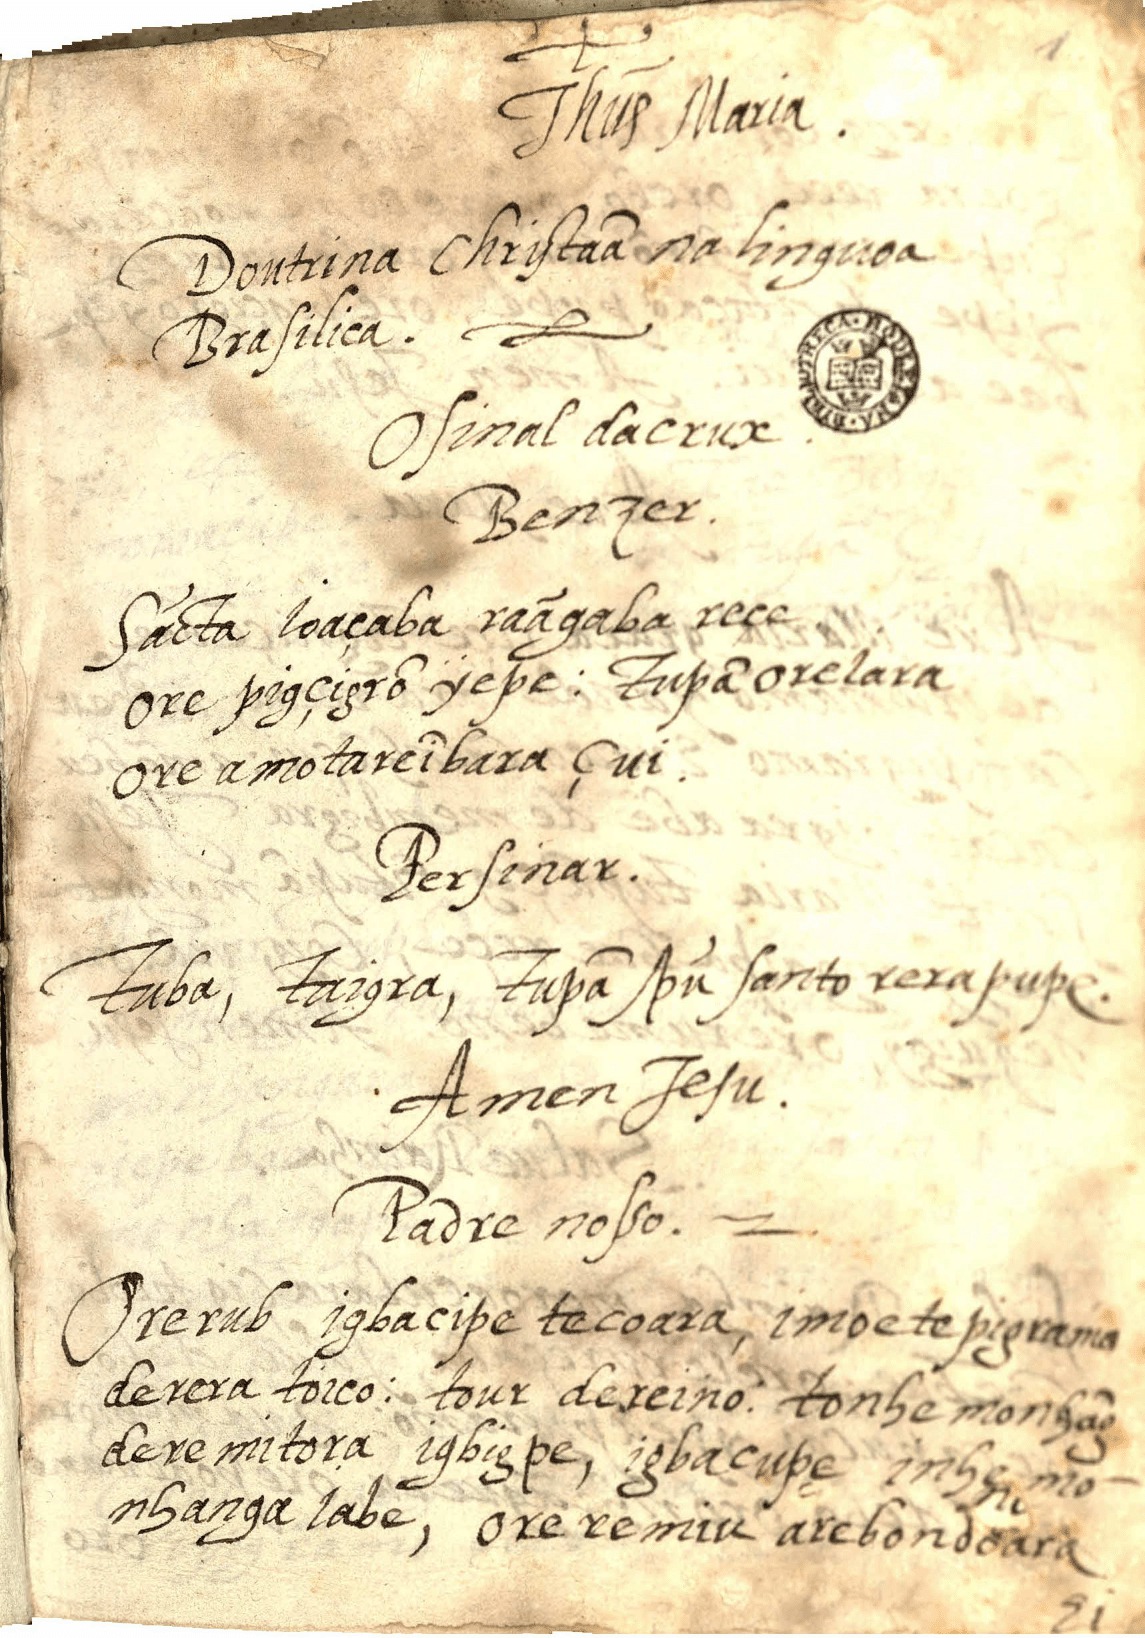 1
Jhũs Maria.
Doutrina Christaã na linguoa
Brasilica.
O sinal da crux.
Benzer.
Sácta ioaçaba raãgaba rece
ore pigçigrõ ÿepe: Tupã orelara
ore amotareĩbara Çui.
Persinar.
Tuba, Taigra, Tupã spũ santo rera pupe.
Amen Jesu.
Padre nosso.
Orerub igbacipe tecoara, imoetepigrama
derera toico: tour dereino: tonhemonhãg
deremitora igbigpe, igbacupe inhemo-
nhanga labe, ore remiu arebondoara